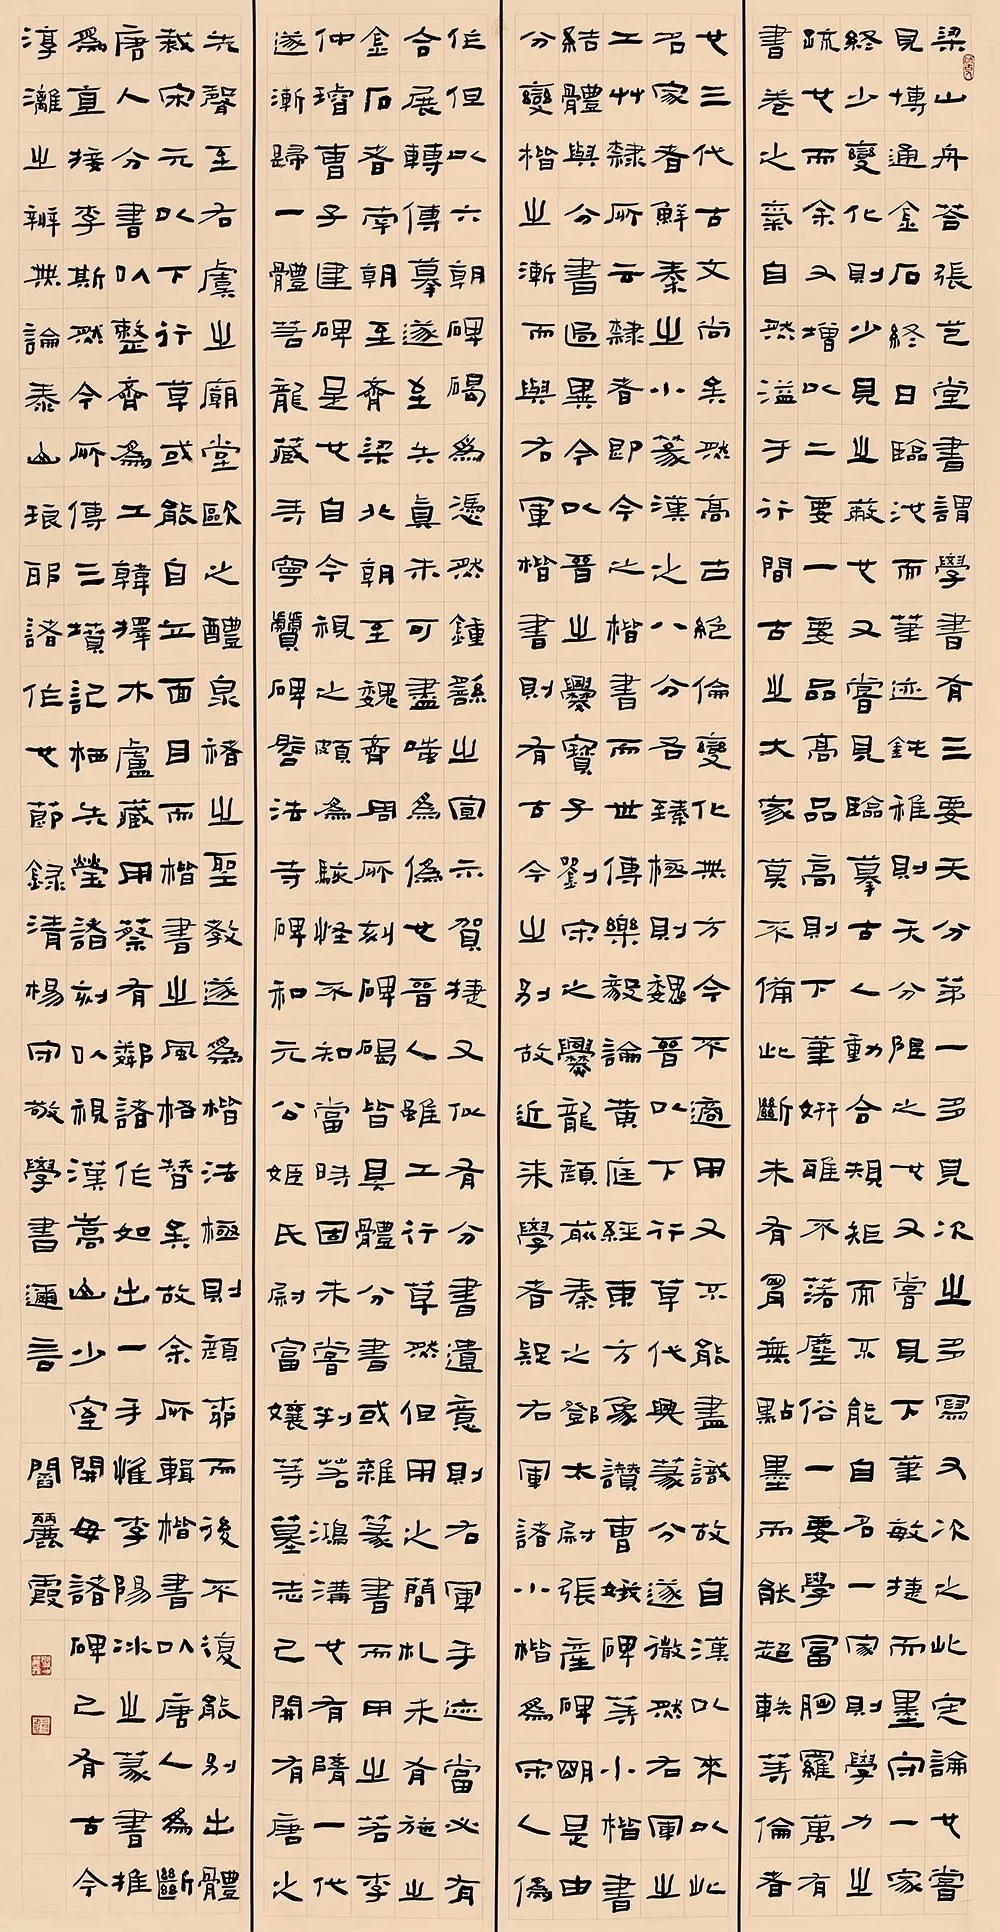 梁山舟答張芑堂書謂學書有三要天分第一多見次之多寫又次之此定論也嘗
見博通金石終日臨池而筆迹鈍稚則天分限之也又嘗見下筆敏捷而墨守一家
終少變化則少見之蔽也又嘗見臨摹古人動合規矩而不能自名一家則學力之
疏也而余又增以二要一要品高品高則下筆妍雅不落塵俗一要學富胸羅萬有
書卷之氣自然溢于行間古之大家莫不備此斷未有胸無點墨而能超軼等倫者
也三代古文尚矣然高古絕倫變化無方今不適用又不能盡識故自漢以來以此
名家者鮮秦之小篆漢之八分各臻極則魏晉以下行草代興篆分遂微然右軍之
工艸隸所云隸者即今之楷書而世傳樂毅論黃庭經東方象讚曹娥碑等小楷書
結體與分書迥異今以晉之爨寶子劉宋之爨龍顏前秦之鄧太尉張産碑明是由
分變楷之漸而與右軍楷書則有古今之別故近来學者疑右軍諸小楷為宋人偽
作但以六朝碑碣為憑然鍾繇之宣示賀捷又似有分書遺意則右軍手迹當必有
合展轉傳摹遂至失真未可盡嗤為偽也晉人雖工行草然但用之簡札未有施之
金石者南朝至齊梁北朝至魏齊周所刻碑碣皆具體分書或雜篆書而用之若李
仲璿曹子建碑是也自今視之頗為駭怪不知當時固未嘗判若鴻溝也有隋一代
遂漸歸一體若龍藏寺寧贙碑啓法寺碑和元公姬氏尉富孃等墓志已開有唐之
先聲至右虞之廟堂歐之醴泉褚之聖教遂為楷法極則顏柳而後不復能別出體
裁宋元以下行草或能自立面目而楷書之風格替矣故余所輯楷書以唐人為斷
唐人分書以整齊為工韓擇木盧藏用蔡有鄰諸作如出一手惟李陽冰之篆書推
為直接李斯然今所傳三墳記栖先塋諸刻以視漢嵩山少室開母諸碑已有古今
淳漓之辨無論泰山琅邪諸作也節錄清楊守敬學書邇言 閻麗霞